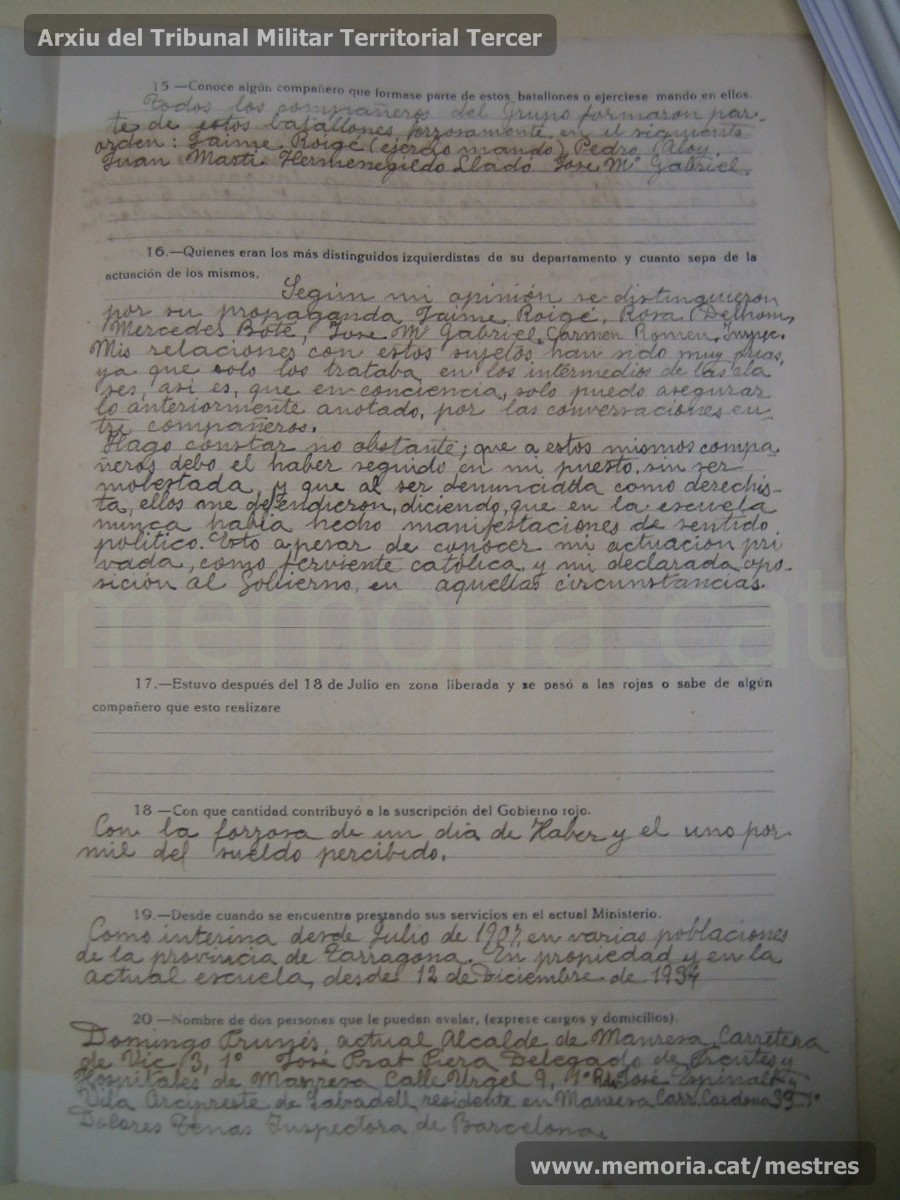 Arxiu del Tribunal Militar Territorial Tercer
15 —Conoce algún compañero que formase parte de estos batallones o ejerciese mando en ellos.
Todos los compañeros del Grupo formaron par-
te de estos batallones, forzosamente en el siguiente
orden: Jaime Roigé (ejerció mando) Pedro Aloy,
Juan Martí Hermenegildo Lladó Jose Mª Gabriel.
16.—Quienes eran los más distinguidos izquierdistas de su departamento y cuanto sepa de la
actuación de los mismos.
Según mi opinión se distinguieron
por su propaganda, Jaime Roigé, Rosa Delhom,
Mercedes Boté, Jose Mª Gabriel, Carmen Romeu, Inspec.
Mis relaciones con estos sujetos han sido muy
ya que solo los trataba en los intermedios de las cla
ses, asi es, que en conciencia, solo puedo asegurar
lo anteriormente anotado, por las conversaciones en-
tre compañeros.
Hago constar no obstante; que a estos mismos compa-
ñeros debo el haber seguido en mi puesto, sin ser
molestada, y que al ser denunciada como derechis-
ta, ellos me defendieron, diciendo, que en la escuela
nunca había hecho manifestaciones de sentido
político. Esto a pesar de conocer mi actuación pri
vada, como ferviente católica y mi declarada opo-
sición al Gobierno, en aquellas circunstancias.
memoria.cat
17.—Estuvo después del 18 de Julio en zona liberada y se pasó a las rojas o sabe de algún
compañero que esto realizare
18 —Con que cantidad contribuyó a la suscripción del Gobierno rojo.
Con la forzosa de un día de Haber y el uno por
mil del sueldo percibido.
19.—Desde cuando se encuentra prestando sus servicios en el actual Ministerio.
Como interina desde Julio de 1907, en varias poblaciones
de la provincia de Tarragona. En propiedad y en la
actual escuela, desde 12 de Diciembre de 1934
20 —Nombre de dos personas que le puedan avalar, (exprese cargos y domicilios).
Domingo Prunés, actual Alcalde de Manresa, Carretera
de Vic, 3, 1º José Prat Piera Delegado de Frentes y
Hospitales de Manresa Calle Urgel 9, 1º José Espinalt y
Vila Arcipreste de Sabadell, residente en Manresa Carr. Cardona 39 1º
Dolores Tenas Inspectora de Barcelona.
www.memoria.cat/mestres